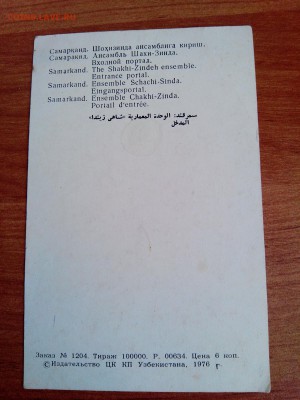 Самарқанд. Шоҳизинда ансамблига кириш.
Самарканд. Ансамбль Шахи-Зинда.
Входной портал.
Samarkand. The Shakhi-Zindeh ensemble.
Entrance portal.
Samarkand. Ensemble Schachi-Sinda.
Eingangsportal.
Samarkand. Ensemble Chakhi-Zinda.
Portail d'entrée.
سمرقند: الوحدة المعمارية «شاهي زيندا»
المدخل
Заказ № 1204. Тираж 100000. Р. 00634. Цена 6 коп.
©Издательство ЦК КП Узбекистана, 1976 г.